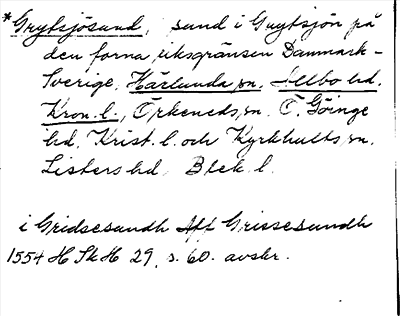 *Grytsjösund, sund i Grytsjön på
den forna riksgränsen Danmark-
Sverige, Härlunda sn. Allbo hd.
Kron. l., Örkeneds sn. Ö. Göinge
hd. Krist. l. och Kyrkhults sn.
Listers hd Blek. l.
i Gridsesundh Aff Grissesundh
1554 H Sk H 29, s. 60. avskr.